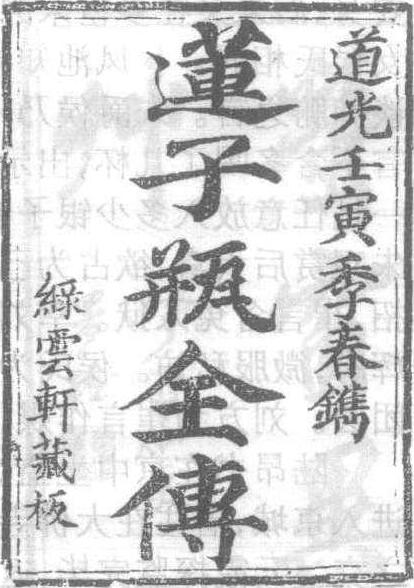 道光壬寅季春鐫
蓮子瓶全傳
綠雲軒藏板